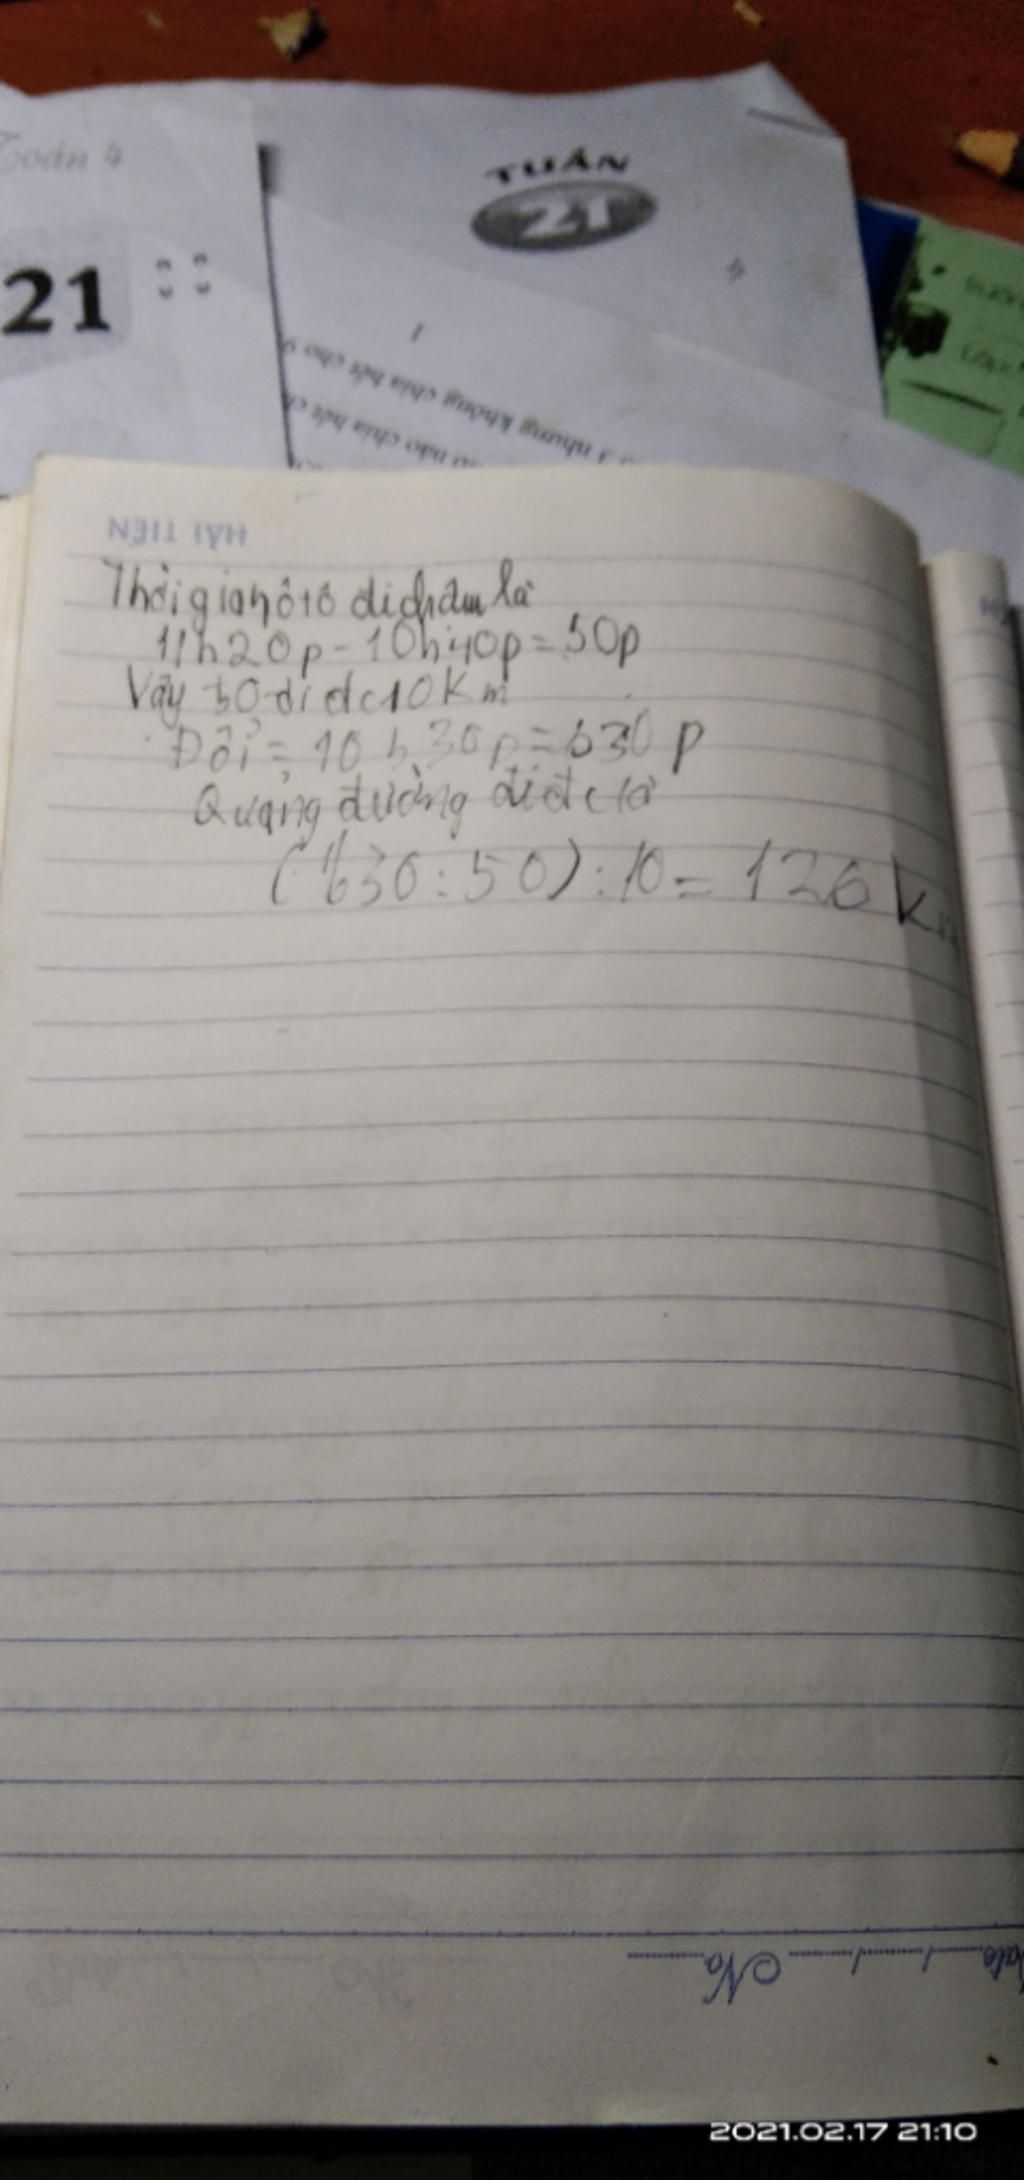 Toán 4
TUẦN
21
21
3 nhưng không chia hết cho 9
nào chia hết
HẢI TIẾN
Thời gian ô tô đi chậm là
11h20p - 10h40p = 50p
Vậy 50 đi đc 10 Km
Đổi = 10h30p = 630p
Quảng đường đi đc là
(630 : 50) : 10 = 126 km
No
Date
2021.02.17 21:10